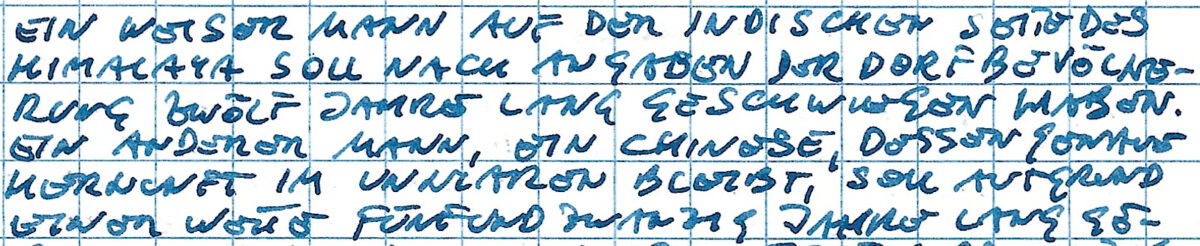 EIN WEISER MANN AUF DER INDISCHEN SEITE DES
HIMALAYA SOLL NACH ANGABEN DER DORFBEVÖLKE-
RUNG ZWÖLF JAHRE LANG GESCHWIEGEN HABEN.
EIN ANDERER MANN, EIN CHINESE, DESSEN GENAUE
HERKUNFT IM UNKLAREN BLEIBT, SOLL AUFGRUND
EINER WETTE FÜNFUNDZWANZIG JAHRE LANG GE-